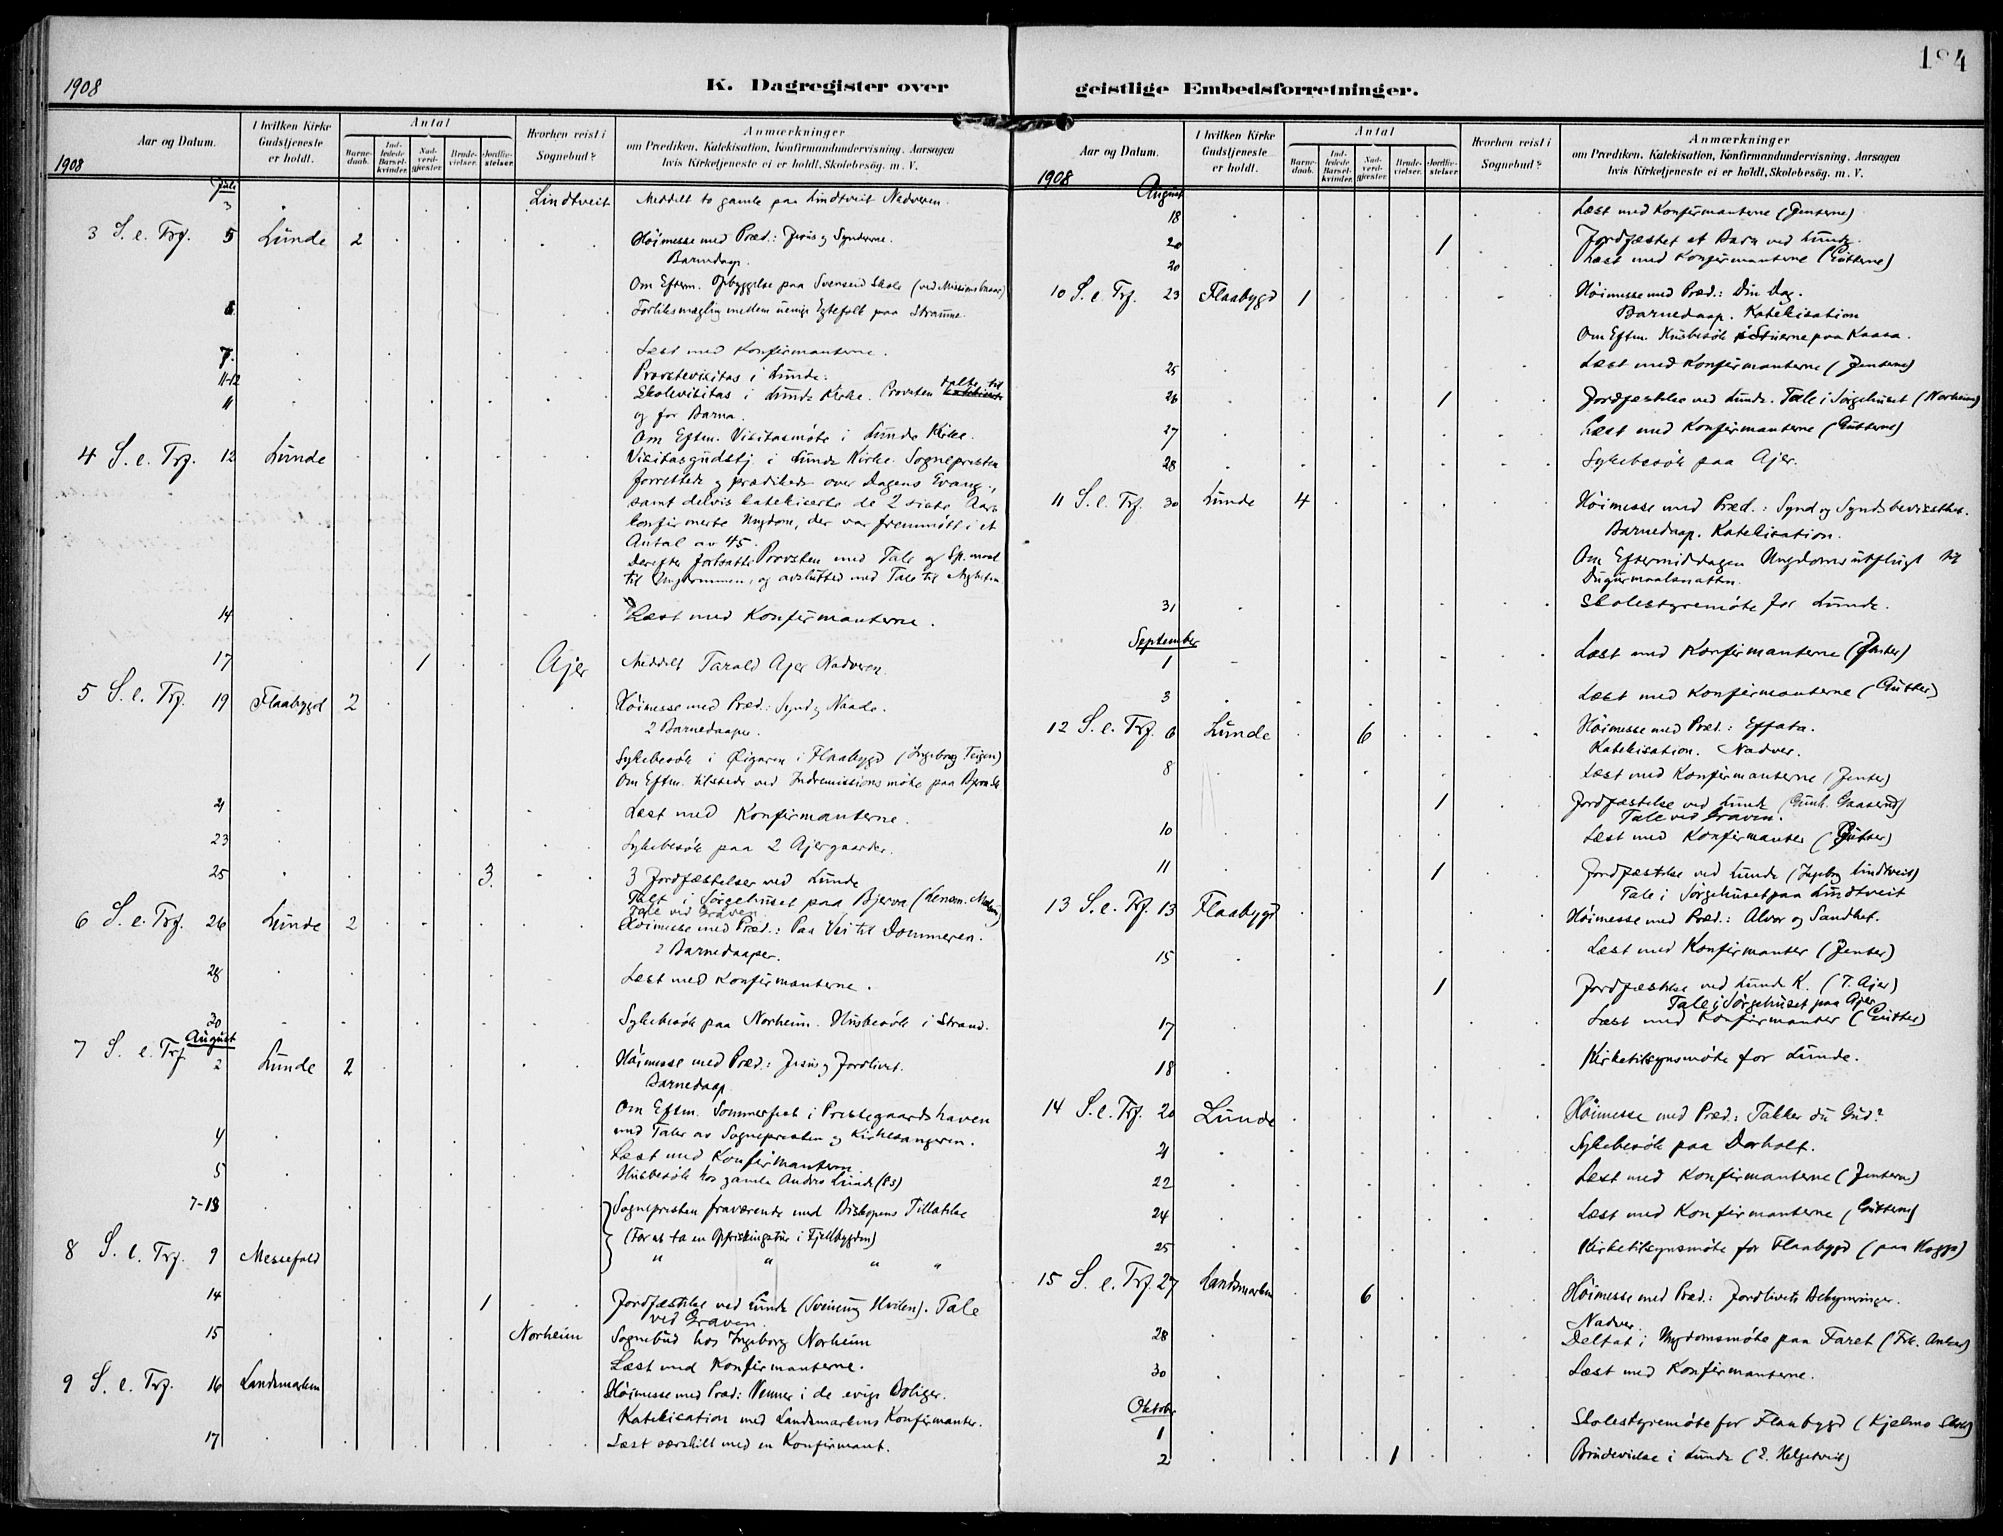 1908
K. Dagregister over
Aar og Datum.
I hvilken Kirke Gudstjeneste er holdt.
Antal
Barnedaab.
Indledede Barselkvinder.
Nadverdgjester.
Brudevielser.
Jordfæstelser
Hvorhen reist i Sognebud?
Anmærkninger
om Prædiken, Katekisation, Konfirmandundervisning, Aarsagen
hvis Kirketjeneste ei er holdt, Skolebesøg, m. V.
1908
Juli
3 Lindtveit Meddelt to gamle paa Lindtveit Nadveren.
3 S. e. Trf. 5 Lunde 2 Høimesse med Præd.: Jesus og Synderne.
Barnedaap.
Om Efterm. Opbyggelse paa Svenseid Skole (ved Missionsbasar)
6 Forliksmægling mellem uenige Egtefolk paa Stramme.
7. Læst med Konfirmanterne.
11-12 Provstevisitas i Lunde.
11 Skolevisitas i Lunde Kirke. Provsten talte til
og for Barna.
Om Eftm. Visitasmøte i Lunde Kirke.
4 S. e. Trf. 12 Lunde Visitasgudstj. i Lunde Kirke. Sognepresten
forrettede og prædikede over Dagens Evang.,
samt delvis katekiserte de 2 siste Aars
konfirmerte Ungdom, der var fremmøtt i et
Antal av 45.
Derefter fortsatte Provsten med Tale og Sp.maal
til Ungdommen, og avslutted med Tale til Migheten
14 Læst med Konfirmanterne.
17 1 Ajer Meddelt Tarald Ajer Nadveren.
5 S. e. Trf. 19 Flaabygd 2 Høimesse med Præd.: Synd og Naade.
2 Barnedaaper.
Sykebesøk i Øigaren i Flaabygd (Ingeborg Teigen)
Om Eftm. tilstede ved Indremissionsmøte paa
21 Læst med Konfirmanterne.
23 Sykebesøk paa 2 Ajergaarder.
25 3. 3 Jordfæstelser ved Lunde
Talt i Sørgehuset paa Bjerva
Tale ved Graven
6 S. e. Trf. 26 Lunde 2 Høimesse med Præd.: Paa Vei til Dommeren.
2 Barnedaaper.
28 Læst med Konfirmanterne.
30 Sykebesøk paa Norheim. Husbesøk i Strand.
August
7 S. e. Trf 2 Lunde 2 Høimesse med Præd.: Jesus og Jordlivet.
Barnedaap.
Om Eftm. Sommerfest i Prestegaardshaven
med Taler av Sognepresten og Kirkesangeren.
4 Læst med Konfirmanterne
5 Husbesøk hos gamle Anders Lunde (83)
7-13 Sognepresten fraværende med Biskopens Tillatelse
(For at ta en Opfriskingstur i Fjellbygden)
8 S. e. Trf. 9 Messefald " " " "
14 1 Jordfæstelse ved Lunde (Sveinung Hvilen). Tale
ved Graven.
15 Norheim Sognebud hos Ingeborg Norheim
Læst med Konfirmanterne.
9 S. e. Trf. 16 Landsmarken Høimesse med Præd: Venner i de evige Boliger.
Katekisation med Landsmarkens Konfirmanter.
17 Læst særskilt med en Konfirmant.
184
geistlige Embedsforretninger.
Aar og Datum.
I hvilken Kirke Gudstjeneste er holdt.
Antal
Barnedaab.
Indledede Barselkvinder.
Nadverdgjester.
Brudevielser.
Jordfæstelser
Hvorhen reist i Sognebud?
Anmærkninger
om Prædiken, Katekisation, Konfirmandundervisning, Aarsagen
hvis Kirketjeneste ei er holdt, Skolebesøg, m. V.
1908
August
18 Læst med Konfirmanterne (Jenterne)
20 1 Jordfæstet et Barn ved Lunde.
20 Læst med Konfirmanterne (Gutterne)
10 S. e. Trf. 23 Flaabygd 1 Høimesse med Præd.: Din Dag.
Barnedaap. Katekisation
Om Eftm. Husbesøk i Stuerne paa Kaasa.
25 Læst med Konfirmanterne (Jenterne)
26 1 Jordfæstelse ved Lunde. Tale i Sørgehuset (Norheim)
27 Læst med Konfirmanterne (Gutterne)
28 Sykebesøk paa Ajer.
11 S. e. Trf. 30 Lunde 4 Høimesse med Præd.: Synd og Syndsbevissthet.
Barnedaap. Katekisation.
Om Eftermiddagen Ungdomsutflugt til
Dugurmaalsnatten.
31 Skolestyremøte for Lunde.
September
1 Læst med Konfirmanterne (Jenter)
3 Læst med Konfirmanterne (Gutter)
12 S. e. Trf. 6 Lunde 6 Høimesse med Præd.: Effata.
Katekisation. Nadver.
8 Læst med Konfirmanterne (Jenter)
1 Jordfæstelse ved Lunde (Gunh. Gaaserud)
Tale ved Graven.
10 Læst med Konfirmanter (Gutter)
11 1 Jordfæstelse ved Lunde (Ingebg Lindtveit)
Tale i Sørgehuset paa Lindtveit
13 S. e. Trf. 13 Flaabygd Høimesse med Præd.: Alvor og Sandhet.
15 Læst med Konfirmanter (Jenter)
1 Jordfæstelse ved Lunde K. (T. Ajer)
Tale i Sørgehuset paa Ajer
17 Læst med Konfirmanter (Gutter)
18 Kirketilsynsmøte for Lunde.
14 S. e. Trf. 20 Lunde Høimesse med Præd.: Takker du Gud?
21 Sykebesøk paa Dorholt.
22 Læst med Konfirmanterne (Jenterne)
24 Læst med Konfirmanterne (Gutterne)
25 Kirketilsynsmøte for Flaabygd (paa Hogga)
15 S. e. Trf. 27 Landsmarken 6 Høimesse med Præd.: Jordlivets Bekymringer.
Nadver.
28 Deltat i Ungdomsmøte paa Faret
30 Læst med Konfirmanterne.
Oktober
1 Skolestyremøte for Flaabygd (Kjelmo Skole)
2 1 Brudevielse i Lunde (E. Helgetveit)